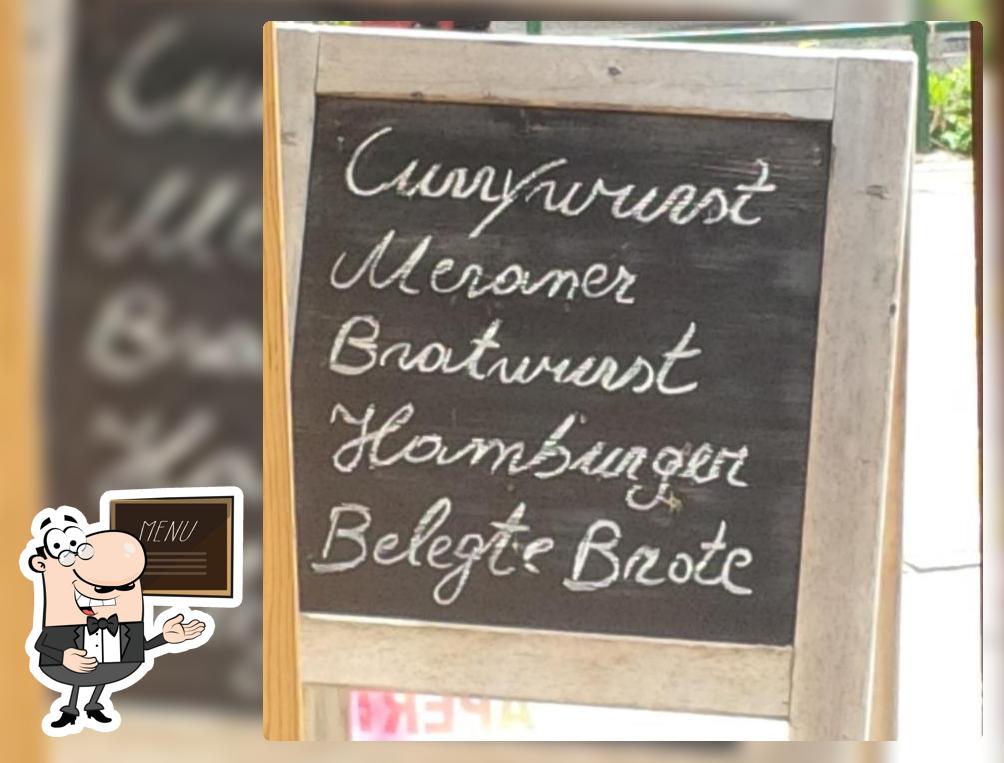 Currywurst
Meraner
Bratwurst
Hamburger
Belegte Brote
MENU
APER